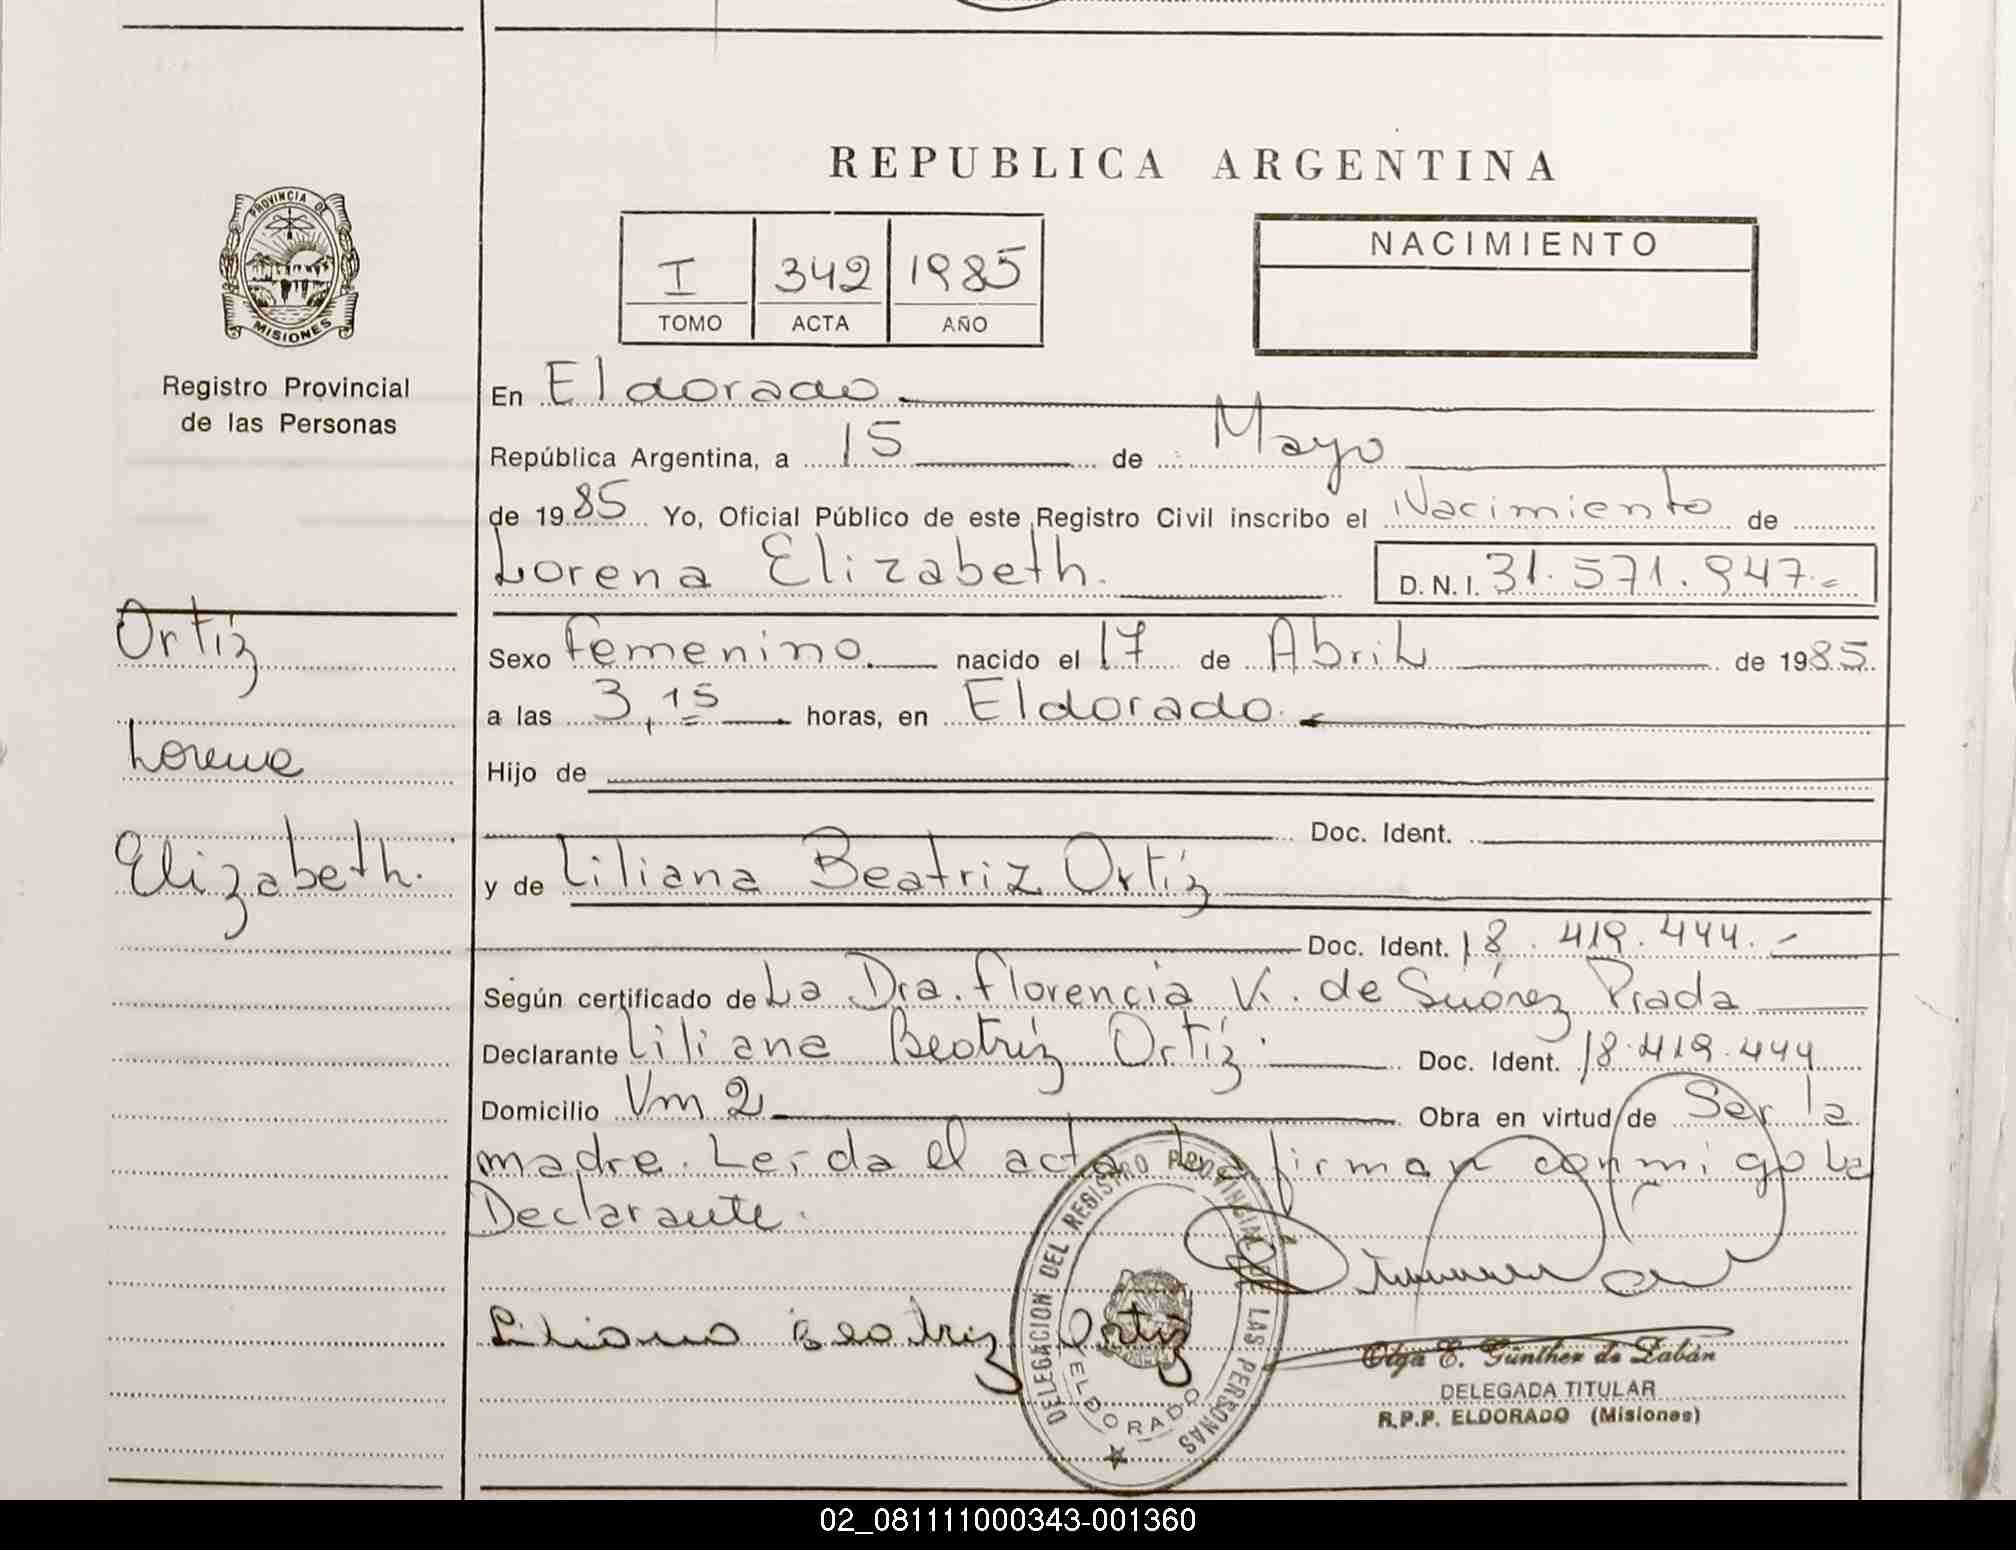 REPUBLICA ARGENTINA
PROVINCIA DE
MISIONES
Registro Provincial
de las Personas
I 342 1985
TOMO ACTA AÑO
NACIMIENTO
En Eldorado
República Argentina, a 15 de Mayo
de 1985 Yo, Oficial Público de este Registro Civil inscribo el Nacimiento de
Lorena Elizabeth.
D.N.I. 31.571.947.=
Ortíz
Lorena
Elizabeth.
Sexo femenino. nacido el 17 de Abril de 1985.
a las 3,15 horas, en Eldorado.
Hijo de
Doc. Ident.
y de Liliana Beatriz Ortíz
Doc. Ident. 18.419.444.-
Según certificado de La Dra. Florencia V. de Suárez Prada
Declarante Liliana Beatríz Ortíz. Doc. Ident. 18.419.444
Domicilio Vm 2 Obra en virtud de Ser la
madre. Leída el acta la firman conmigo la
Declarante.
Liliana Beatriz Ortiz
DELEGACION DEL REGISTRO PROVINCIAL DE LAS PERSONAS
ELDORADO
Olga E. Günther de Zabán
DELEGADA TITULAR
R.P.P. ELDORADO (Misiones)
02_081111000343-001360